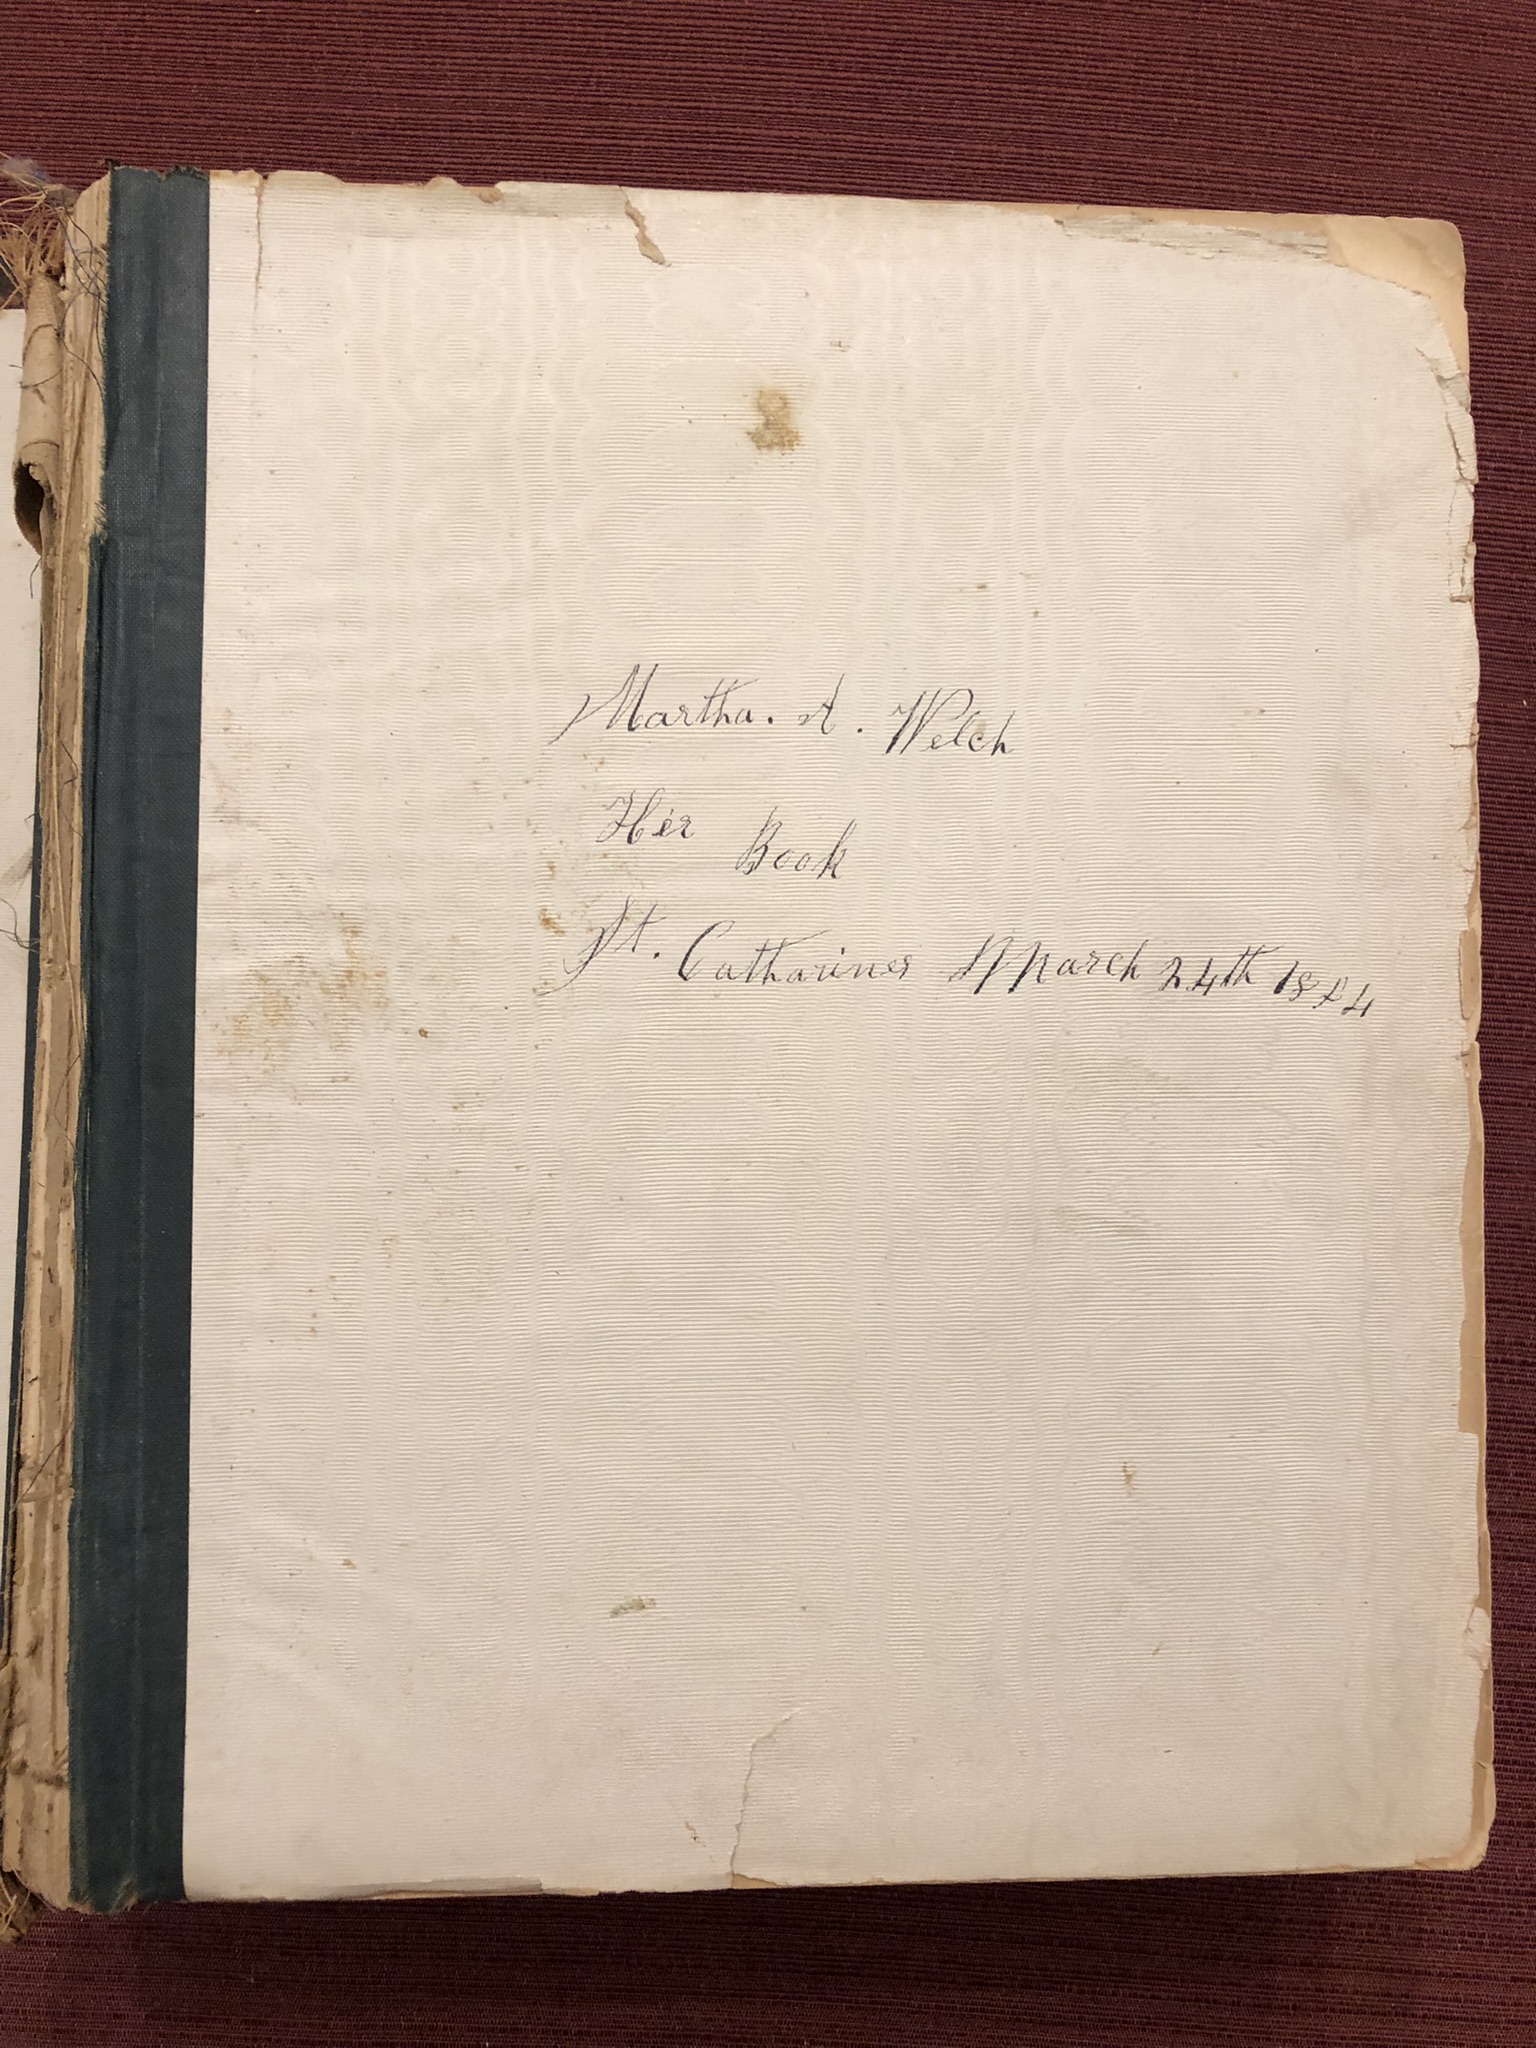 Martha. A. Welch
Her Book
St. Catharines March 24th 1884